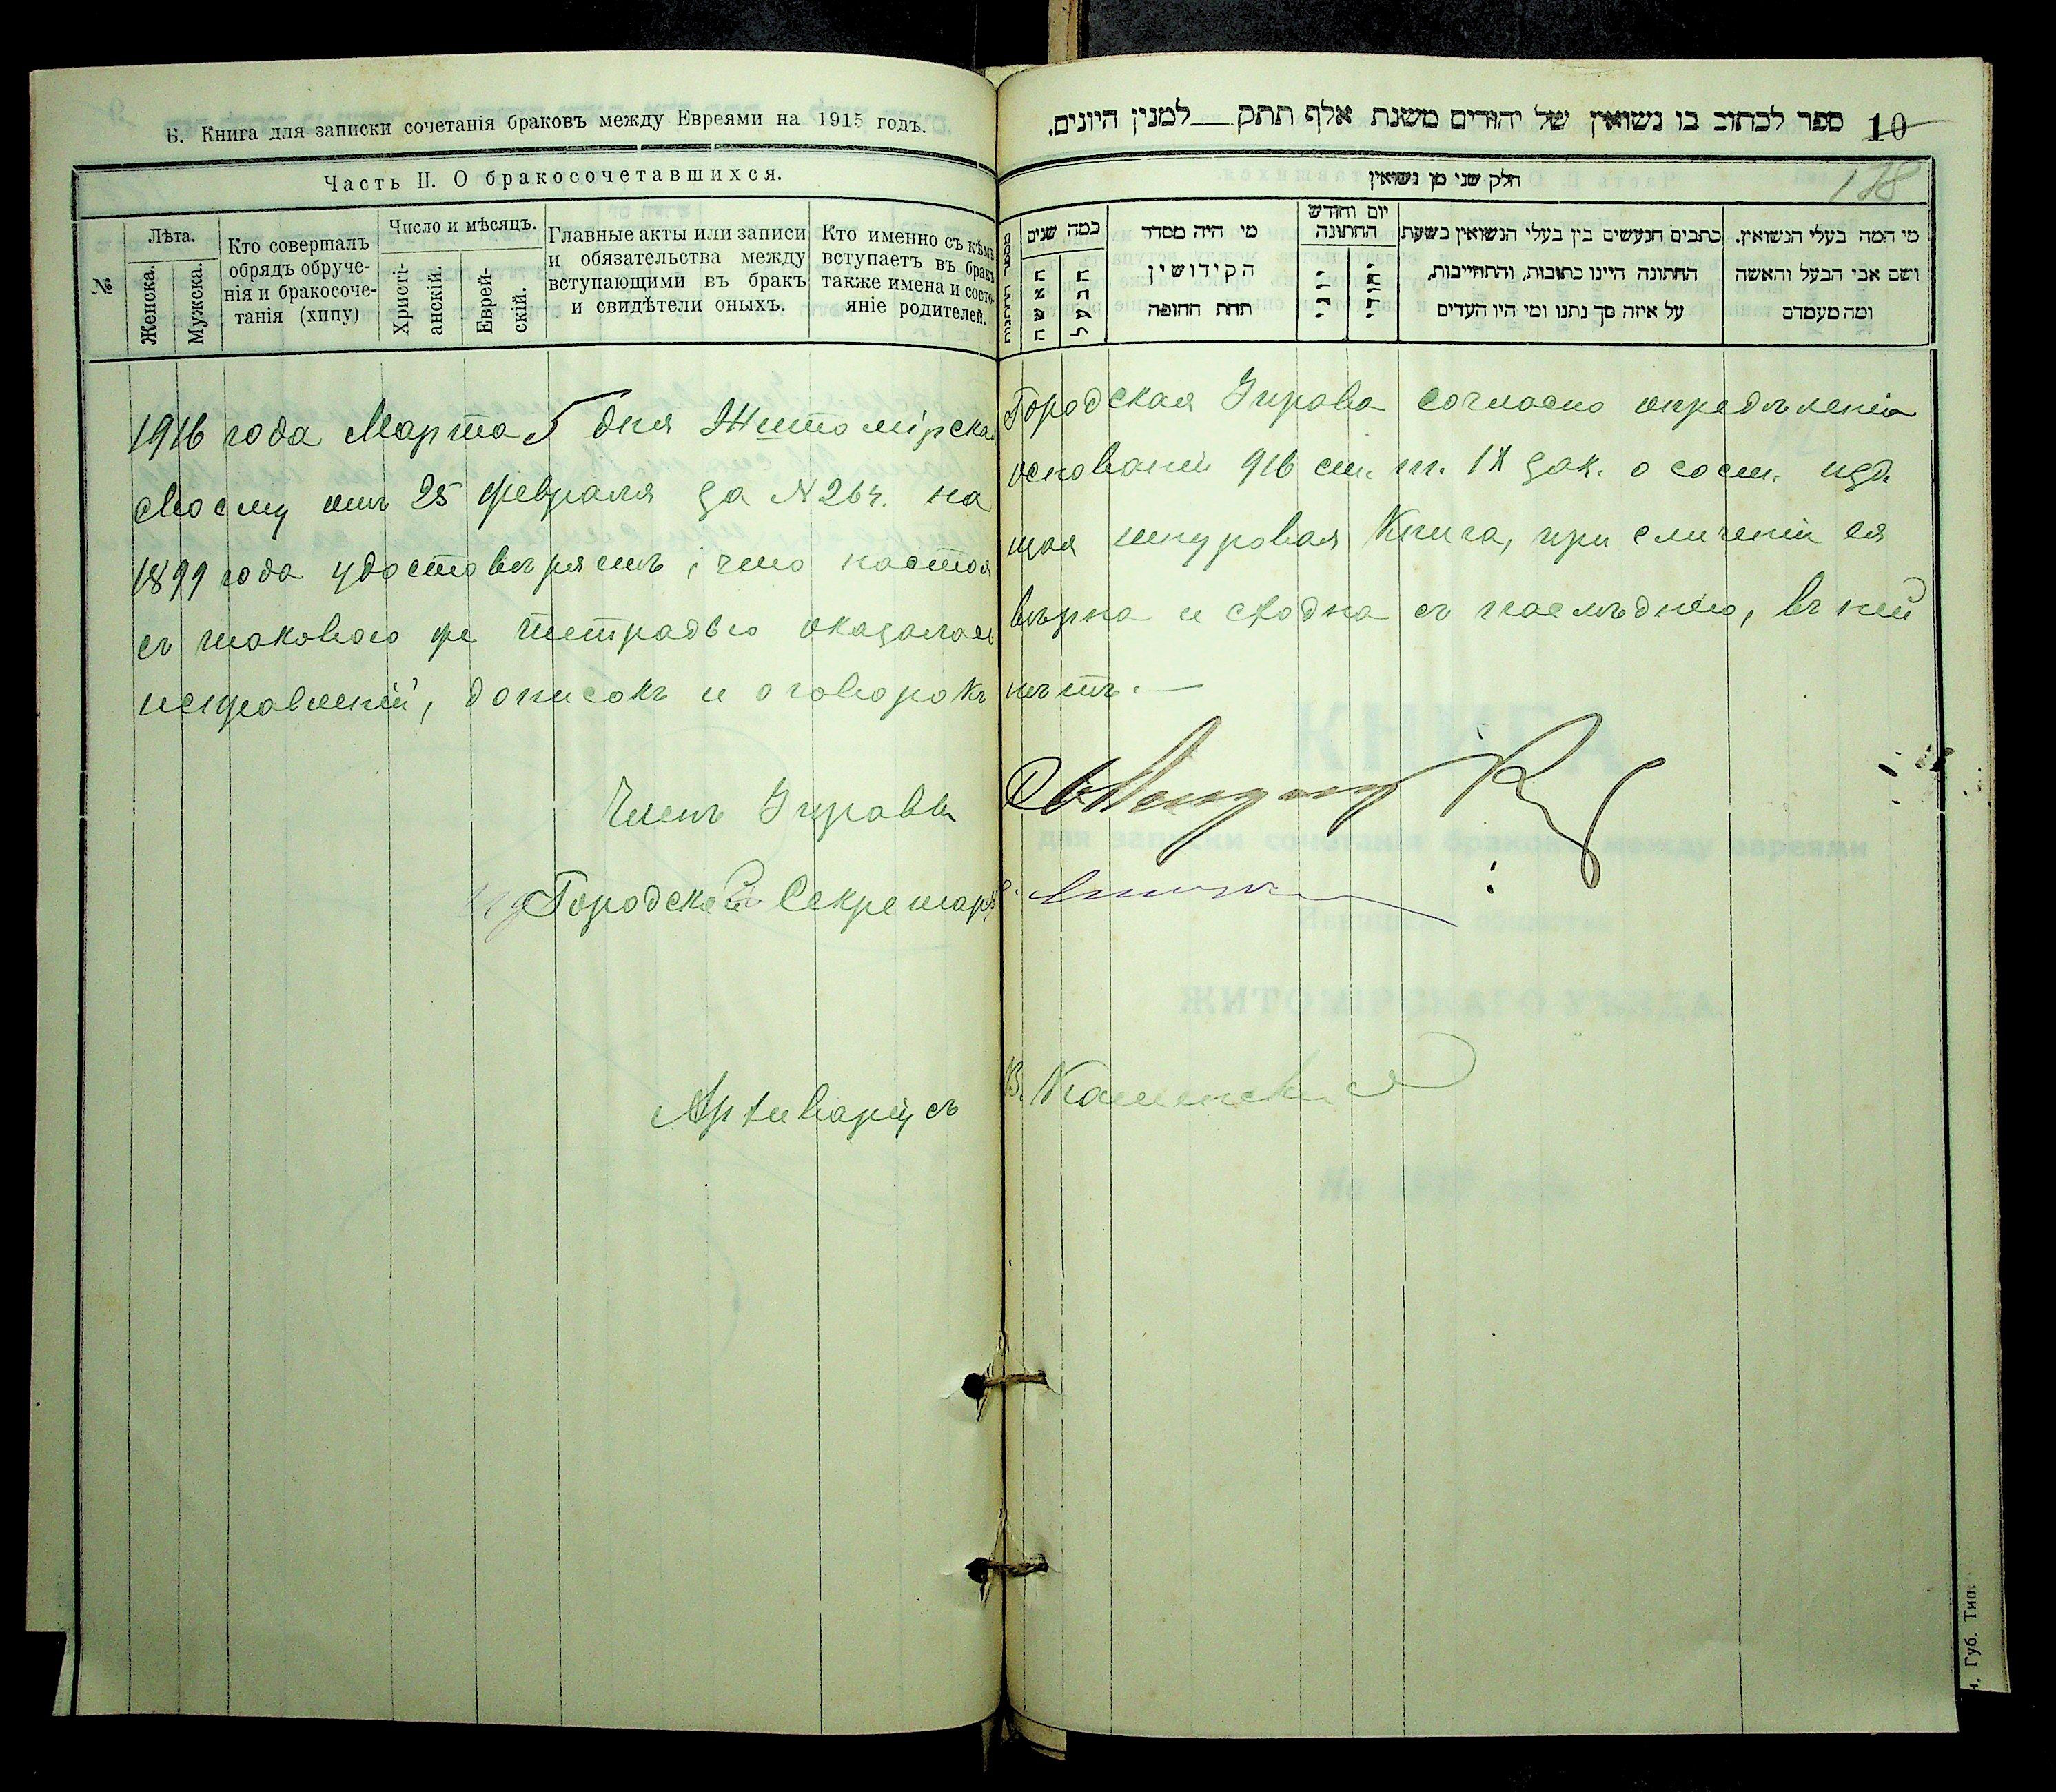 Б. Книга для записки сочетанія браковъ между Евреями на 1915 годъ.
Часть II. О бракосочетавшихся.
№
Лѣта.
Женска.
Мужска.
Кто совершалъ
обрядъ обруче-
нія и бракосоче-
танія (хипу)
Число и мѣсяцъ.
Христі-
анскій.
Еврей-
скій.
Главные акты или записи
и обязательства между
вступающими въ бракъ
и свидѣтели оныхъ.
Кто именно съ кѣмъ
вступаетъ въ бракъ
также имена и состо-
яніе родителей.
ספר לכתוב בו נשואין של יהודים משנת אלף תתק למנין היונים.
10
128
חלק שני מן נשואין
מספר החתונות
כמה שנים
האשה
הבעל
מי היה מסדר
הקידושין
תחת החופה
יום וחודש
החתונה
יוני
יהודי
כתבים הנעשים בין בעלי הנשואין בשעת
החתונה היינו כתובות, והתחייבות,
על איזה סך נתנו ומי היו העדים
מי המה בעלי הנשואין.
ושם אבי הבעל והאשה
ומה מעמדם
1916 года Марта 5 дня Житомірская Городская Управа согласно опредѣленія
своему отъ 25 февраля за N 264. на основаніи 916 ст. т. IX зак. о сост. изд.
1899 года удостовѣряетъ, что настоящая шнуровая Книга, при сличеніи ея
съ таковою же тетрадью оказалась вѣрна и сходна съ послѣднею, въ ней
исправленій, дописокъ и оговорокъ нѣтъ.—
Членъ Управы
Городской Секретарь
Архиваріусъ В. Каменскій
КНИГА
для записки сочетанія браковъ между евреями
ЖИТОМІРСКАГО УѢЗДА
Губ. Тип.